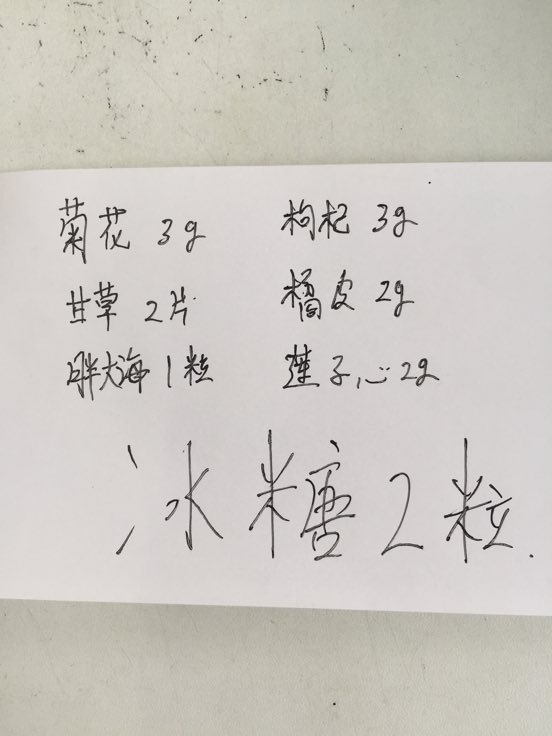 菊花 3g 枸杞 3g
甘草 2片 橘皮 2g
胖大海 1粒 莲子心 2g
冰糖 2粒.